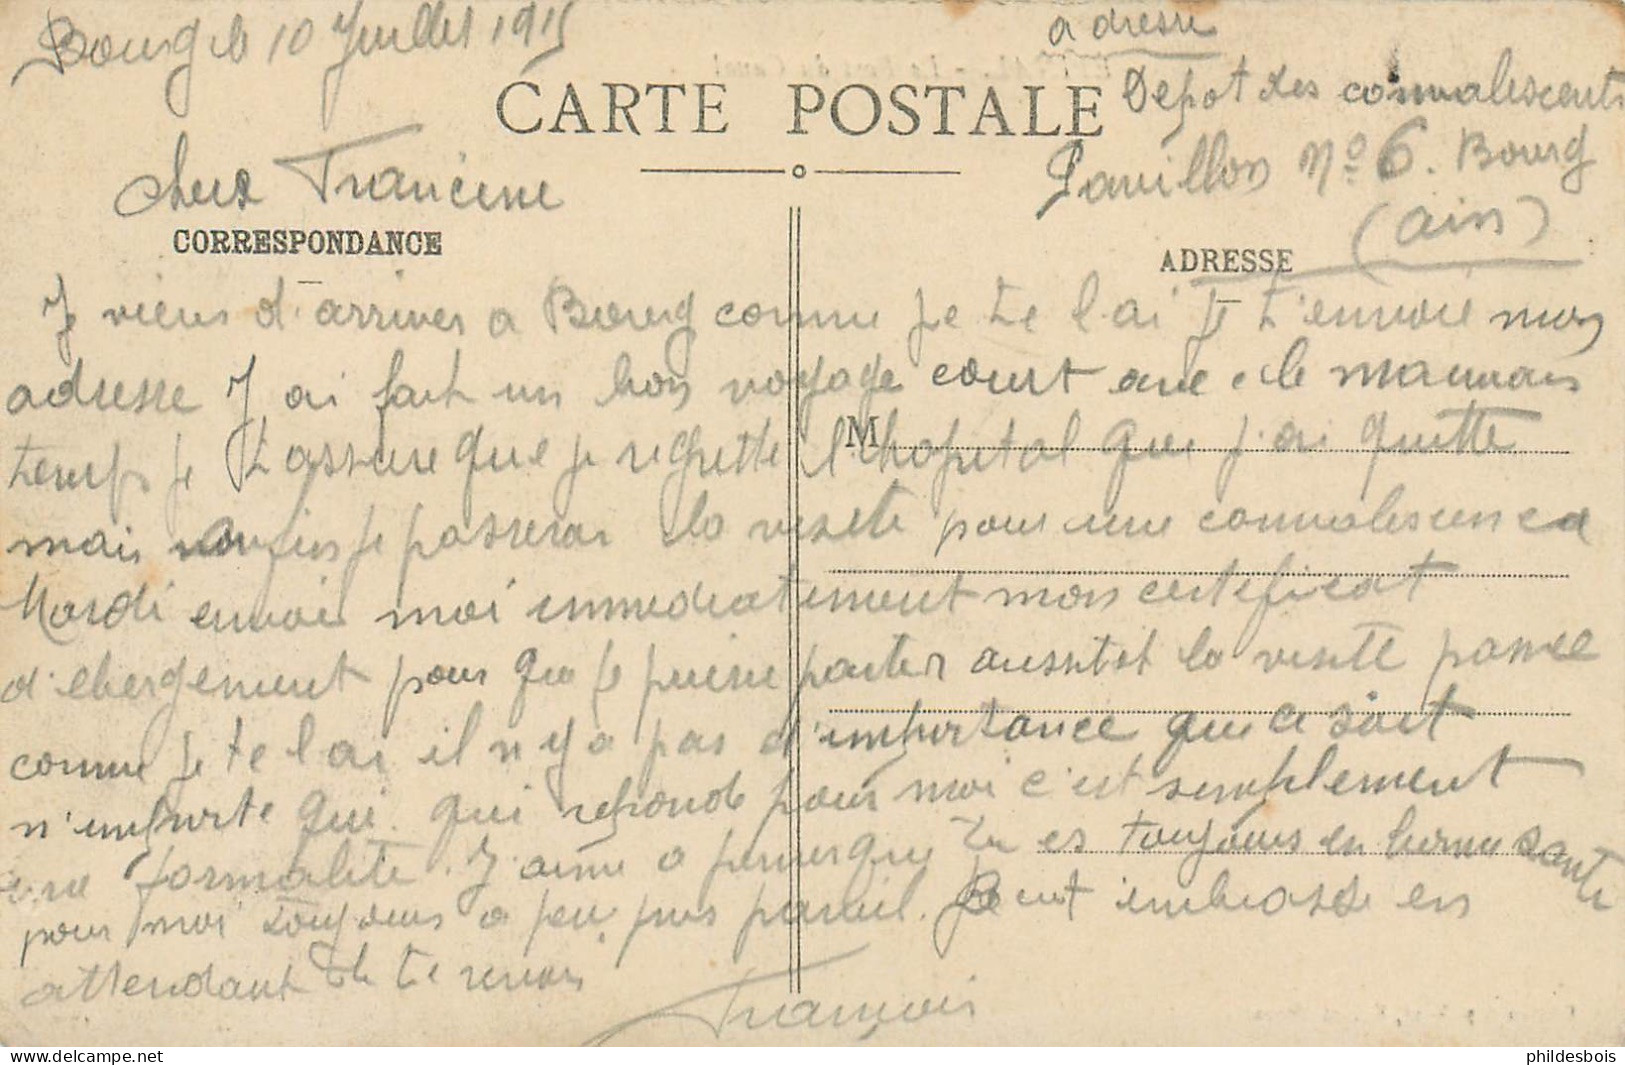 Bourg le 10 Juillet 1915
adresse
Depot des convalescents
CARTE POSTALE
Pavillon No 6. Bourg
(ain)
chere Francine
CORRESPONDANCE
ADRESSE
Je viens d'arriver a Bourg comme je te l ai Je t'envoie mon
adresse J ai fait un bon voyage court avec le mauvais
temps je t assure que je regrette l'hopital que j'ai quitte
M
mais enfin je passerai la visite pour une convalescence
Mardi envoie moi immediatement mon certificat
d'ebergement pour que je puisse partir aussitot la visite passee
comme je te l ai il n y a pas d'importance que ce soit
n'importe qui qui reponde pour moi c'est simplement
une formalite. J'aime a penser que tu es toujours en bonne sante
pour moi toujours a peu pres pareil. Je t'embrasse en
attendant de te revoir
François
phildesbois